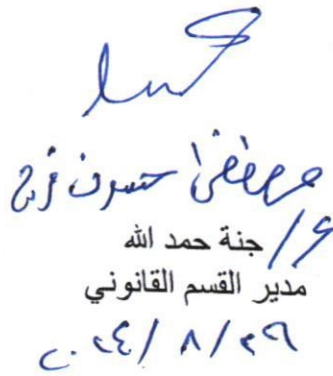 مصطفى حسون فرج
ع/ جنة حمد الله
مدير القسم القانوني
٢٠٢٤/٨/٢٩